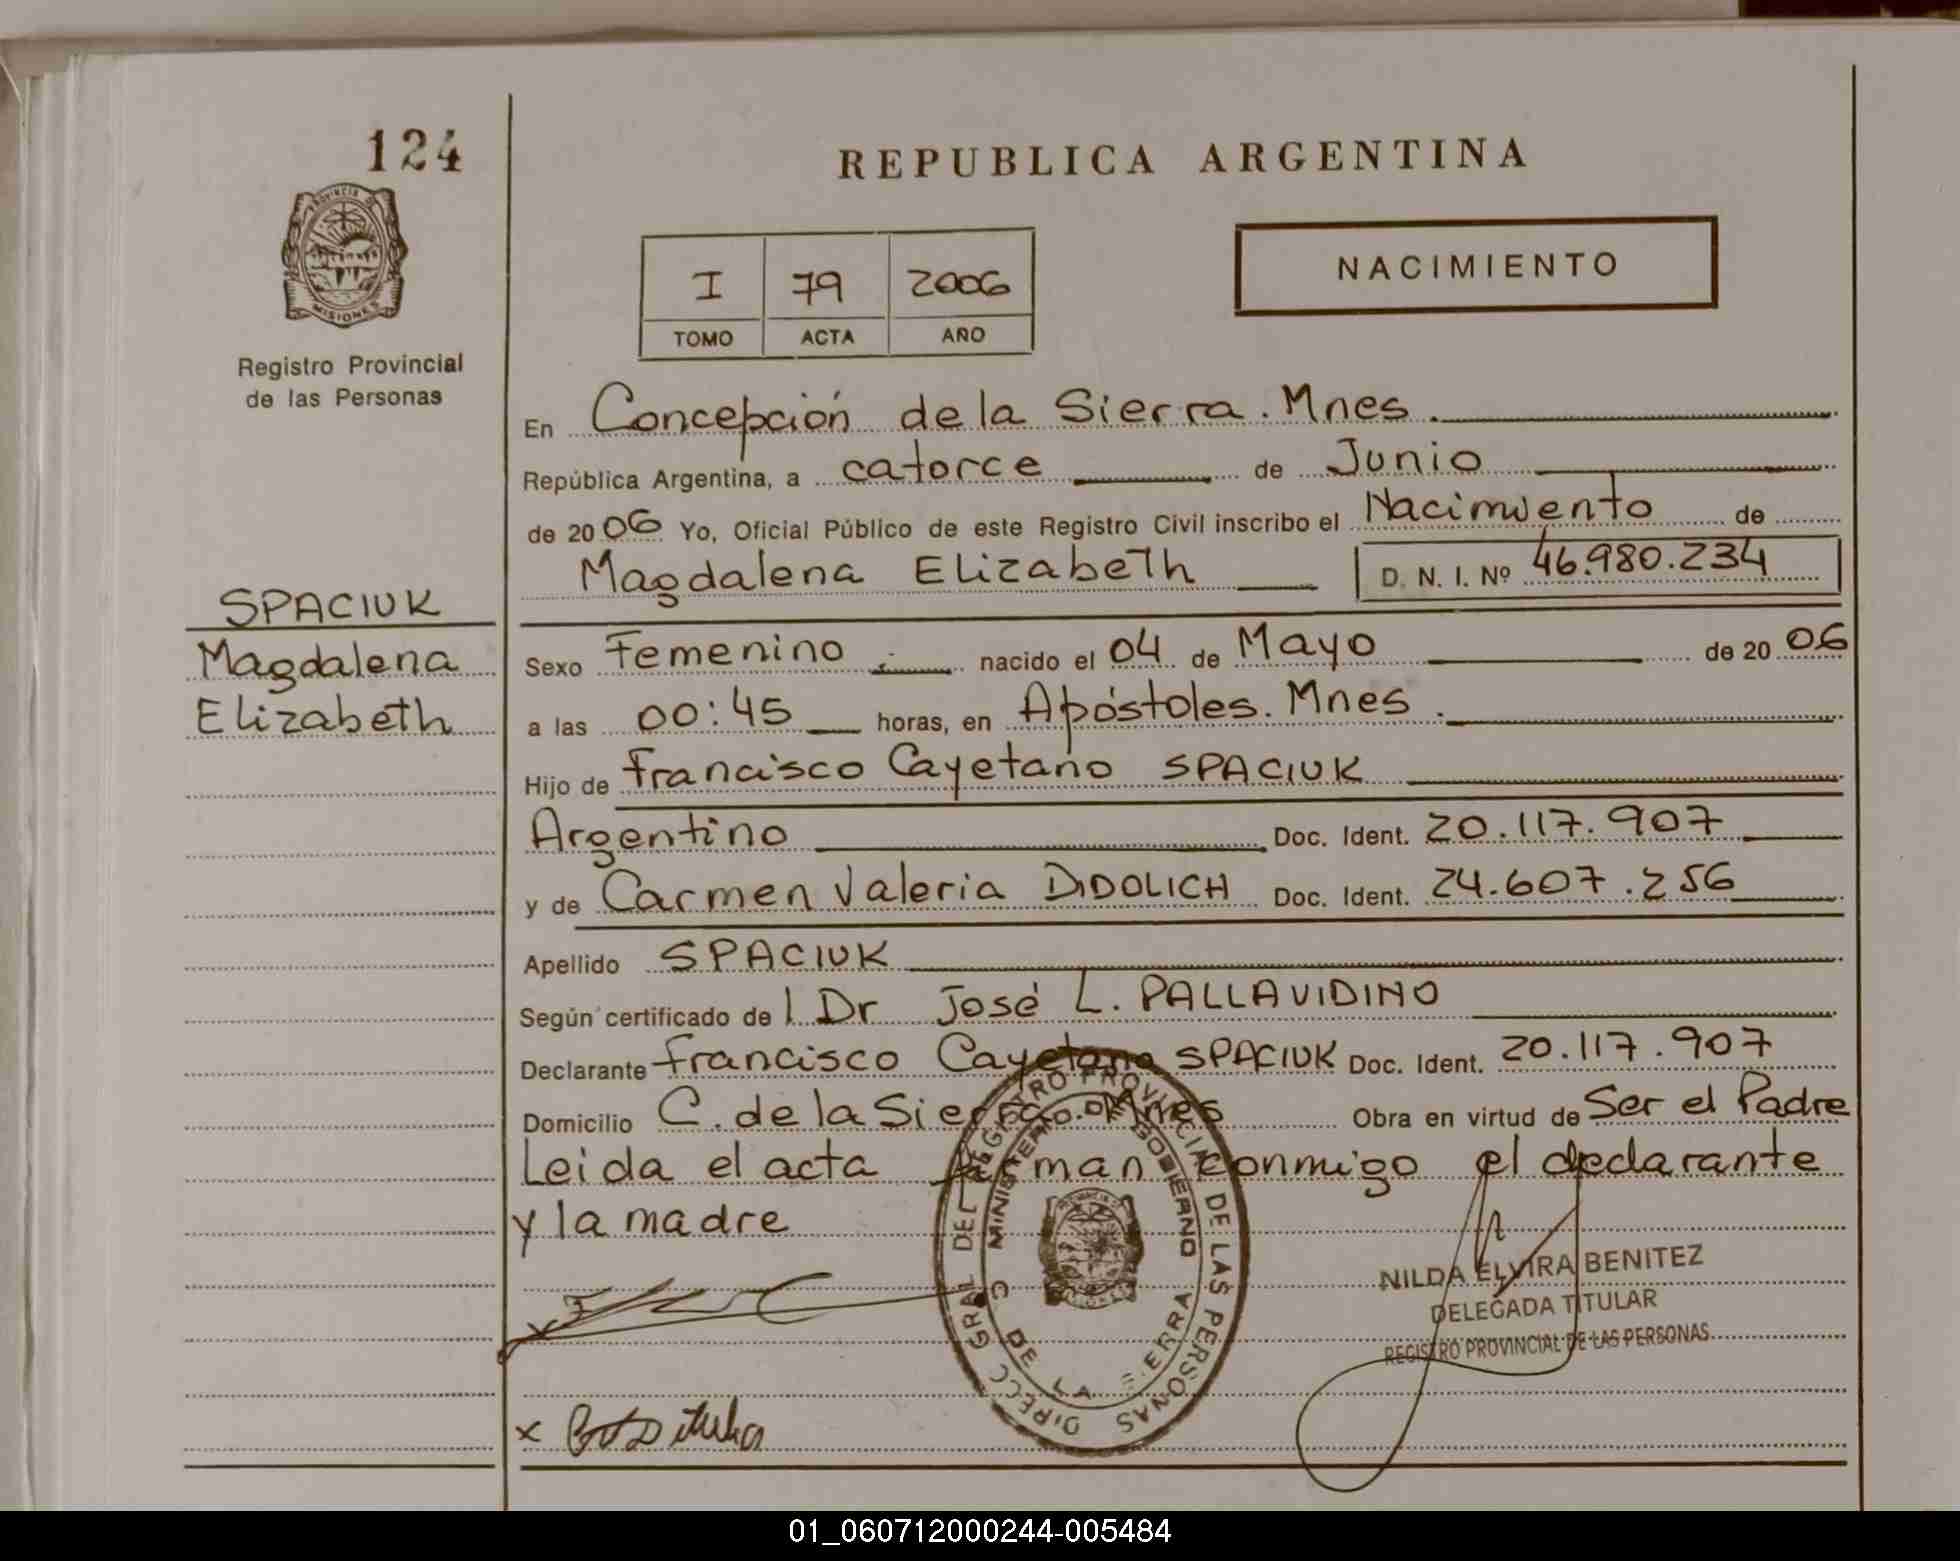 124
PROVINCIA DE
MISIONES
Registro Provincial
de las Personas
SPACIUK
Magdalena
Elizabeth
REPUBLICA ARGENTINA
I 79 2006
TOMO ACTA AÑO
NACIMIENTO
En Concepción de la Sierra. Mnes.
República Argentina, a catorce de Junio
de 2006 Yo, Oficial Público de este Registro Civil inscribo el Nacimiento de
Magdalena Elizabeth D. N. I. Nº 46.980.234
Sexo Femenino nacido el 04 de Mayo de 2006
a las 00:45 horas, en Apóstoles. Mnes.
Hijo de Francisco Cayetano SPACIUK
Argentino Doc. Ident. 20.117.907
y de Carmen Valeria DIDOLICH Doc. Ident. 24.607.256
Apellido SPACIUK
Según certificado de l Dr José L. PALLAVIDINO
Declarante Francisco Cayetano SPACIUK Doc. Ident. 20.117.907
Domicilio C. de la Sierra. Mnes Obra en virtud de Ser el Padre
Leida el acta firman conmigo el declarante
y la madre
DIRECC GRAL DEL REGISTRO PROVINCIAL DE LAS PERSONAS
MINISTERIO DE GOBIERNO
C DE LA SIERRA
NILDA ELVIRA BENITEZ
DELEGADA TITULAR
REGISTRO PROVINCIAL DE LAS PERSONAS
01_060712000244-005484